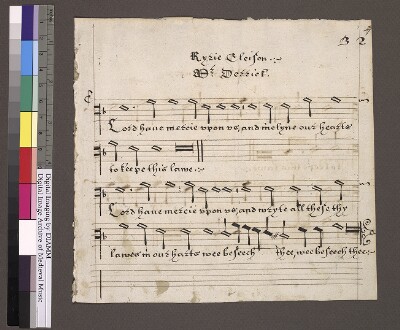 32
Kyrie Eleison.
Mr. Derrick.
Lord haue mercie vpon vs, and inclyne our hearts
to keepe this lawe.
Lord haue mercie vpon vs, and wryte all these thy
lawes in our harts wee beseech thee, wee beseech thee.
Digital Imaging by DIAMM
Digital Image Archive of Medieval Music